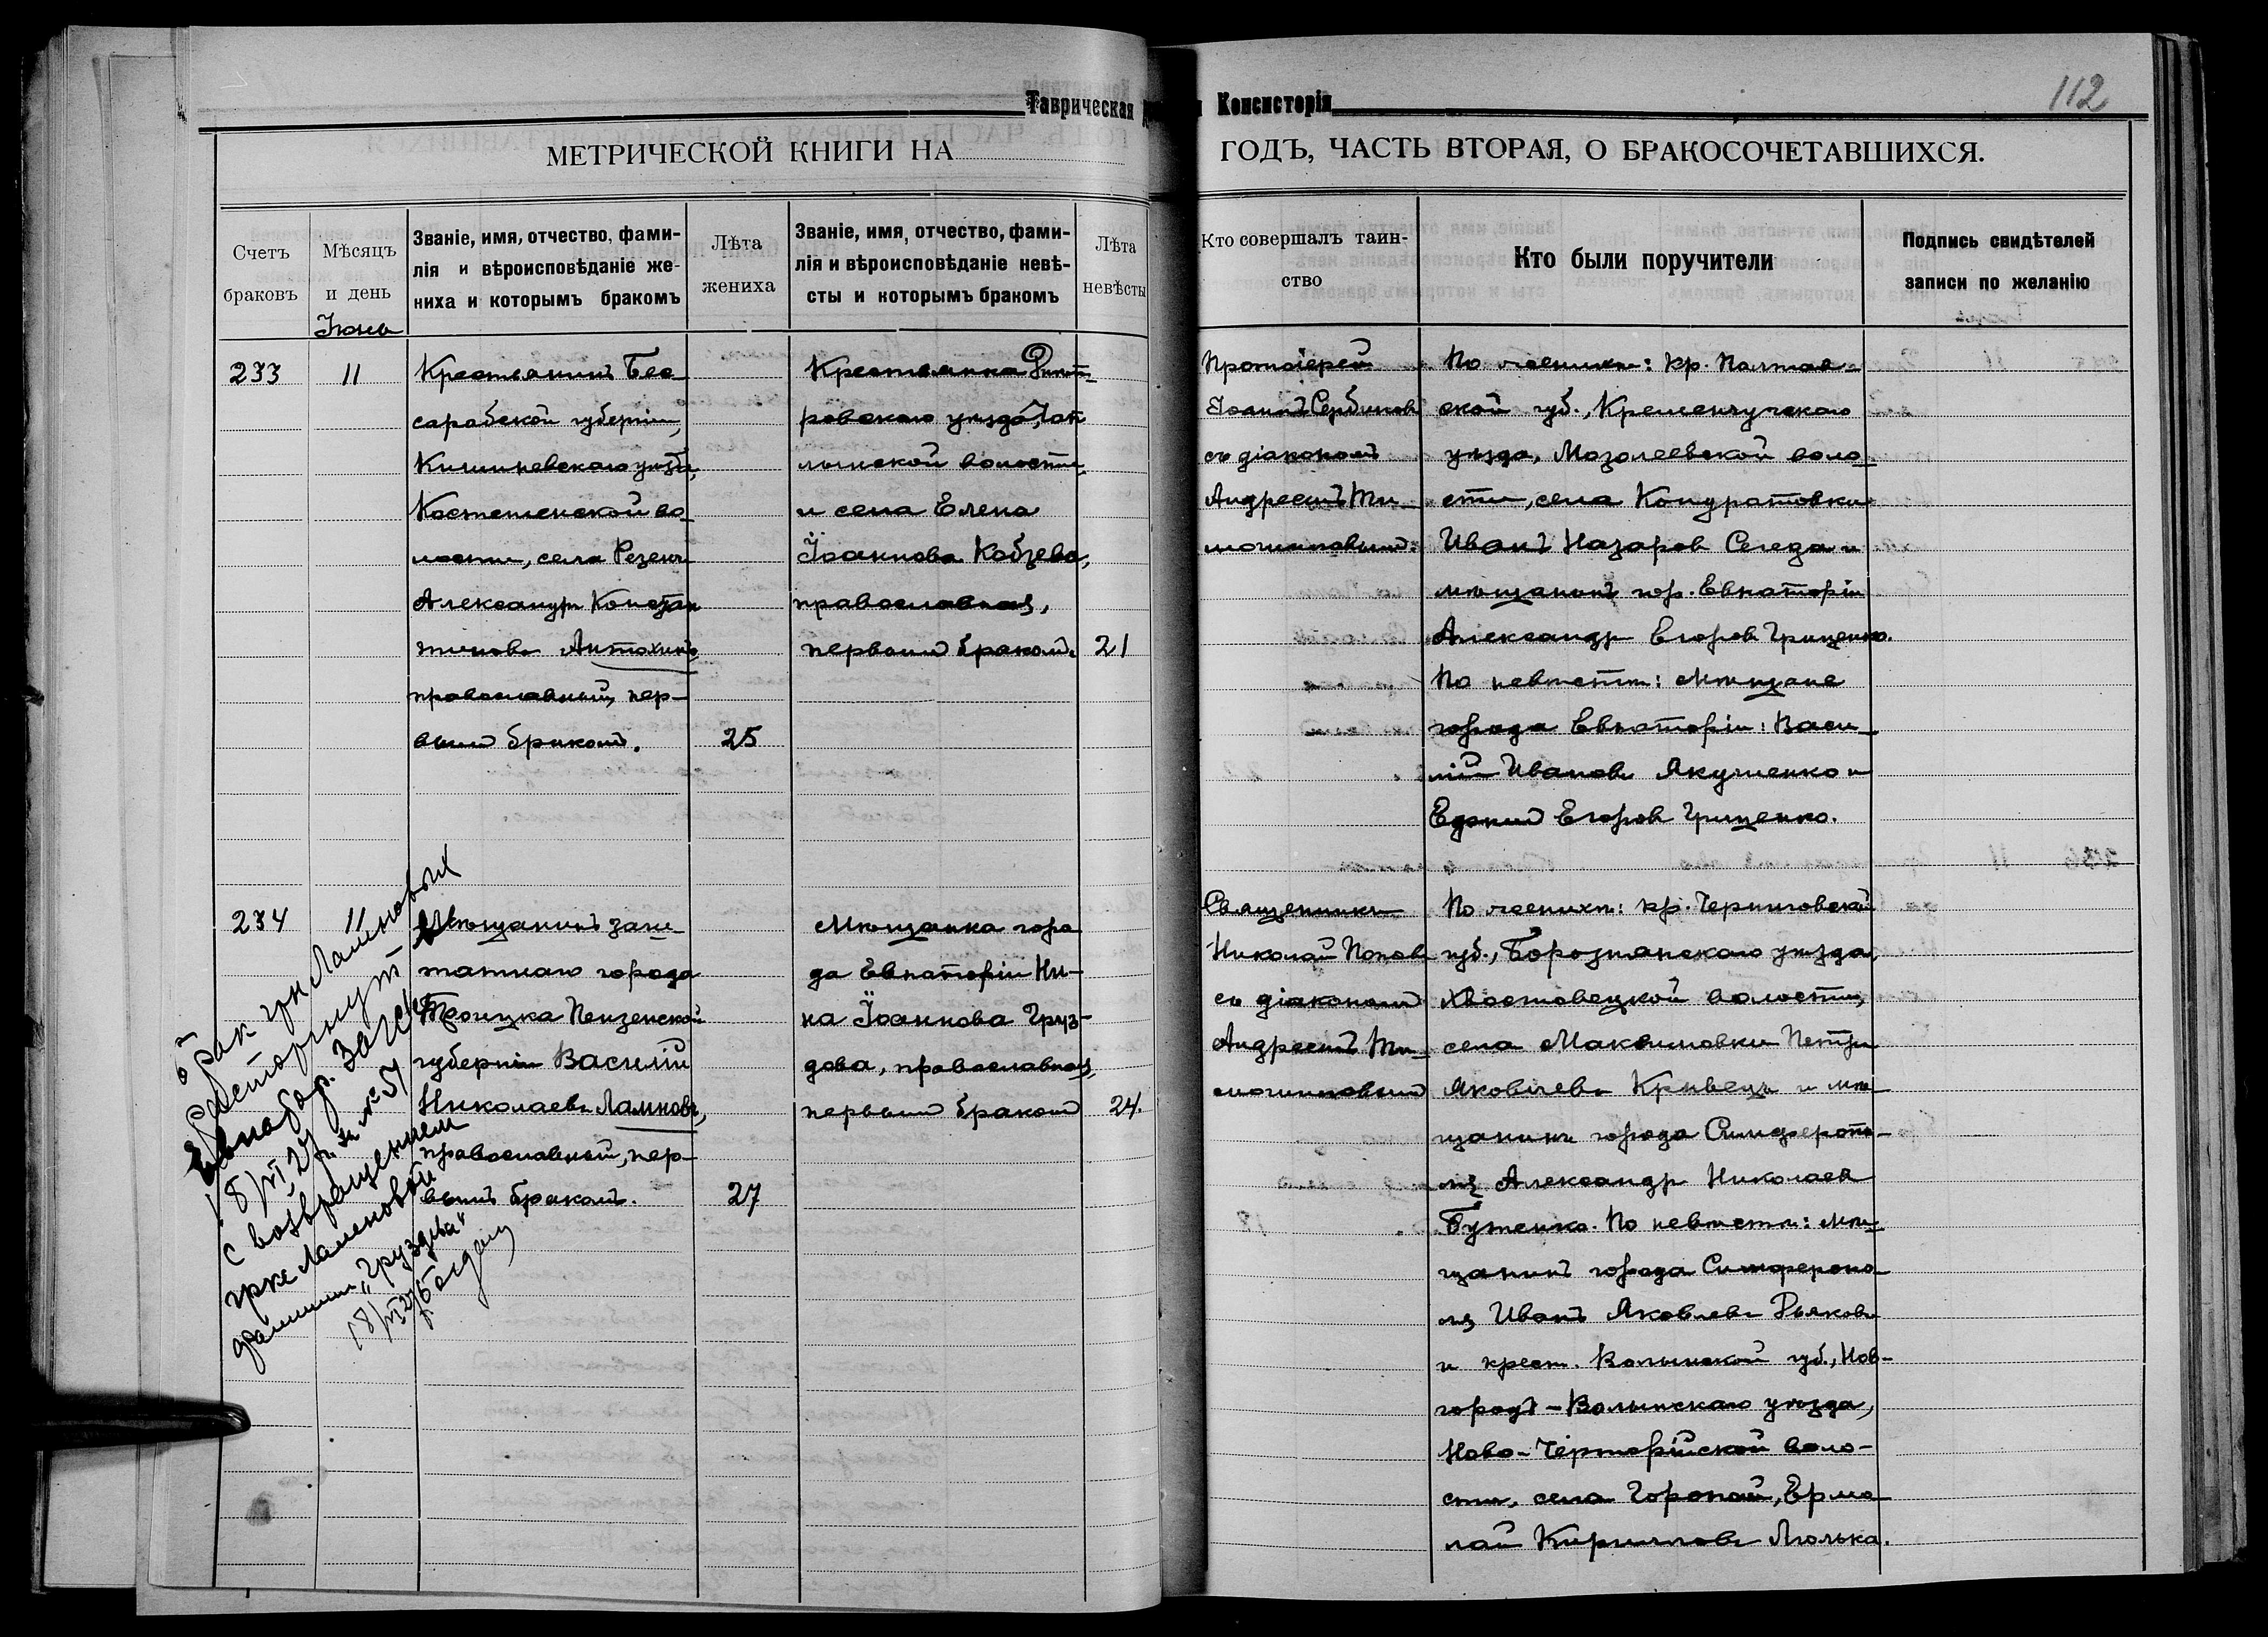 112
Таврическая
Консисторія
МЕТРИЧЕСКОЙ КНИГИ НА
ГОДЪ, ЧАСТЬ ВТОРАЯ, О БРАКОСОЧЕТАВШИХСЯ.
Счетъ
браковъ
Мѣсяцъ
и день
Званіе, имя, отчество, фами-
лія и вѣроисповѣданіе же-
ниха и которымъ бракомъ
Лѣта
жениха
Званіе, имя, отчество, фами-
лія и вѣроисповѣданіе невѣ-
сты и которымъ бракомъ
Лѣта
невѣсты
Кто совершалъ таин-
ство
Кто были поручители
Подпись свидѣтелей
записи по желанію
Іюнь
233
11
Крестьянинъ Бес-
сарабской губерніи,
Кишиневскаго уѣзда,
Костешенской во-
лости, села Резены
Александръ Констан
тиновъ Антохинъ,
православный, пер-
вымъ бракомъ.
25
Крестьянка Днѣп-
ровскаго уѣзда, Чап
лынской волости
и села Елена
Іоаннова Кобзева,
православная,
первымъ бракомъ.
21
Протоіерей
Іоаннъ Сербиновъ
съ діакономъ
Андреемъ Ти-
мошиновымъ.
По женихѣ: кр. Полтав-
ской губ., Кременчугскаго
уѣзда, Мозалеевской воло-
сти, села Кондратовки
Иванъ Назаровъ Середа и
мѣщанинъ гор. Евпаторіи
Александръ Егоровъ Гриценко.
По невѣстѣ: мѣщане
города Евпаторіи: Васи-
лій Ивановъ Якущенко и
Ефимъ Егоровъ Гриценко.
234
11
Мѣщанинъ заш-
татнаго города
Троицка Пензенской
губерніи Василій
Николаевъ Ламновъ,
православный, пер-
вымъ бракомъ.
27
Мѣщанка горо
да Евпаторіи Ни-
на Іоаннова Груз-
дова, православная,
первымъ бракомъ
24.
Священникъ
Николай Поповъ
съ діакономъ
Андреемъ Ти-
мошиновымъ
По женихѣ: кр. Черниговской
губ., Борознянскаго уѣзда,
Хвостовецкой волости,
села Максимовки Петръ
Яковлевъ Кривецъ и мѣ-
щанинъ города Симферопо-
ля Александръ Николаевъ
Бутенко. По невѣстѣ: мѣ-
щанинъ города Симферопо-
ля Иванъ Яковлевъ Рьяковъ
и крест. Волынской губ., Нов-
городъ-Волынскаго уѣзда,
Ново-Черторійской воло-
сти, села Горопай, Ермо
лай Кирилловъ Люлька.
брак гр-н Ламновых
расторгнут
Евпатор. ЗАГСе
18/VI 27 г. за № 51
с возвращением
гр-ке Ламновой
фамилии "Груздова"
18/VI 27 г.